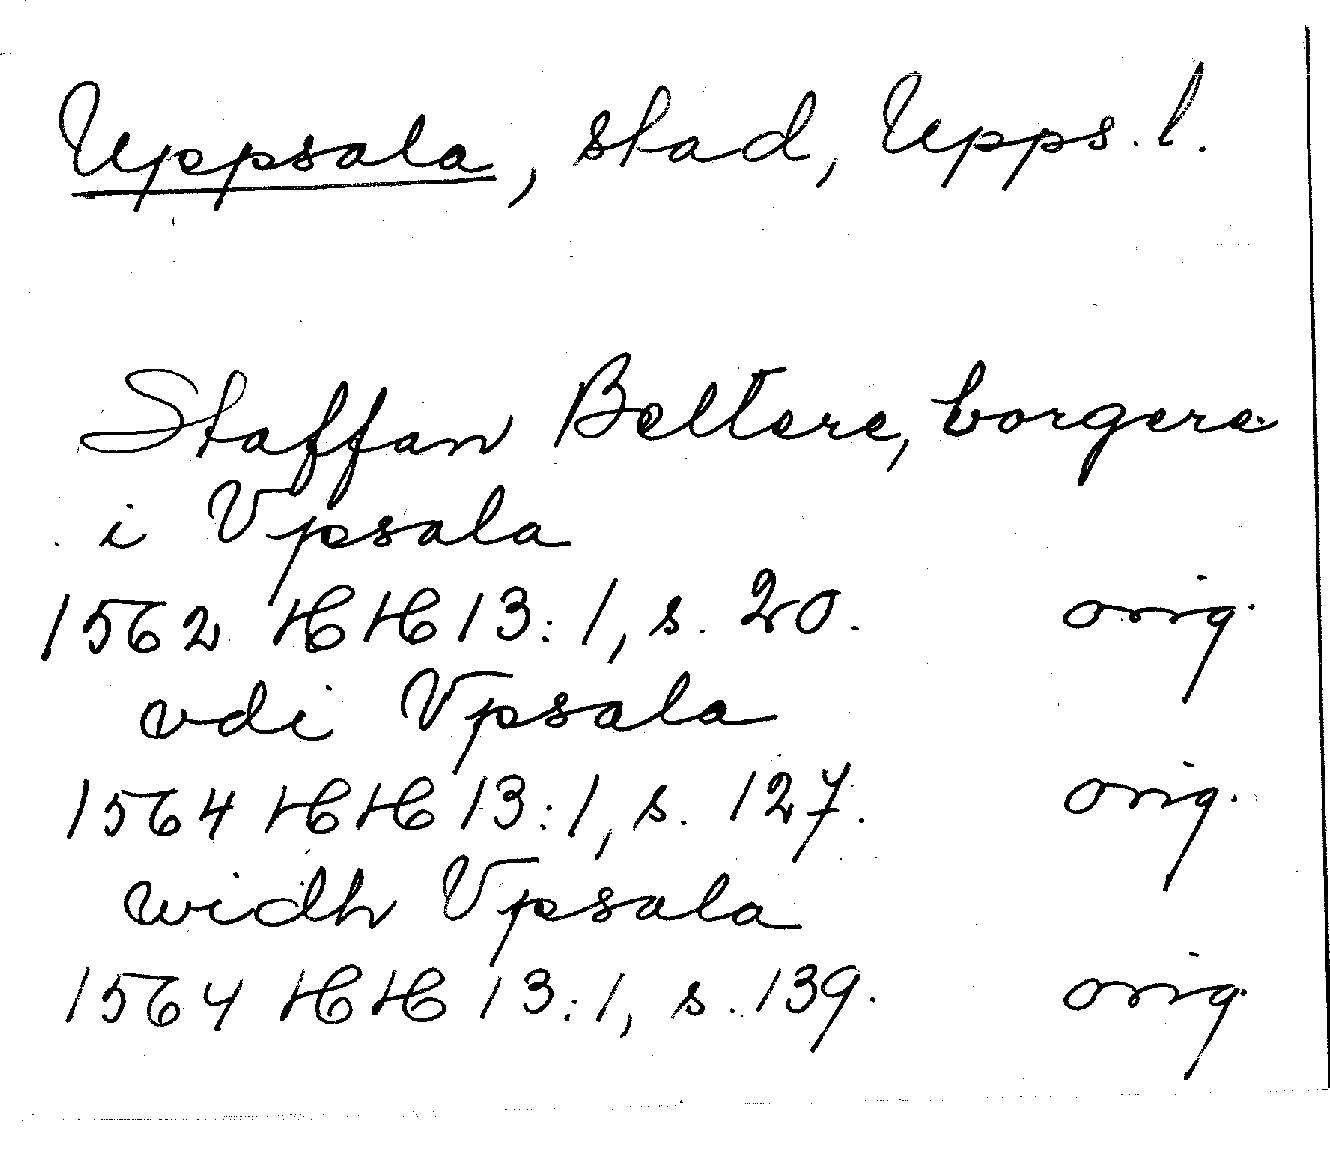 Uppsala, stad, Upps. l.
Staffan Beltere, borgere
i Vpsala
1562 HH 13:1, s. 20. orig.
vdi Vpsala
1564 HH 13:1, s. 127. orig.
widh Vpsala
1564 HH 13:1, s. 139. orig.